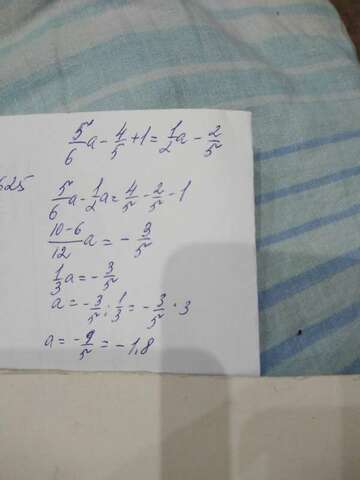 5/6 a - 4/5 + 1 = 1/2 a - 2/5
625
5/6 a - 1/2 a = 4/5 - 2/5 - 1
10-6/12 a = - 3/5
1/3 a = - 3/5
a = - 3/5 : 1/3 = - 3/5 · 3
a = - 9/5 = - 1,8